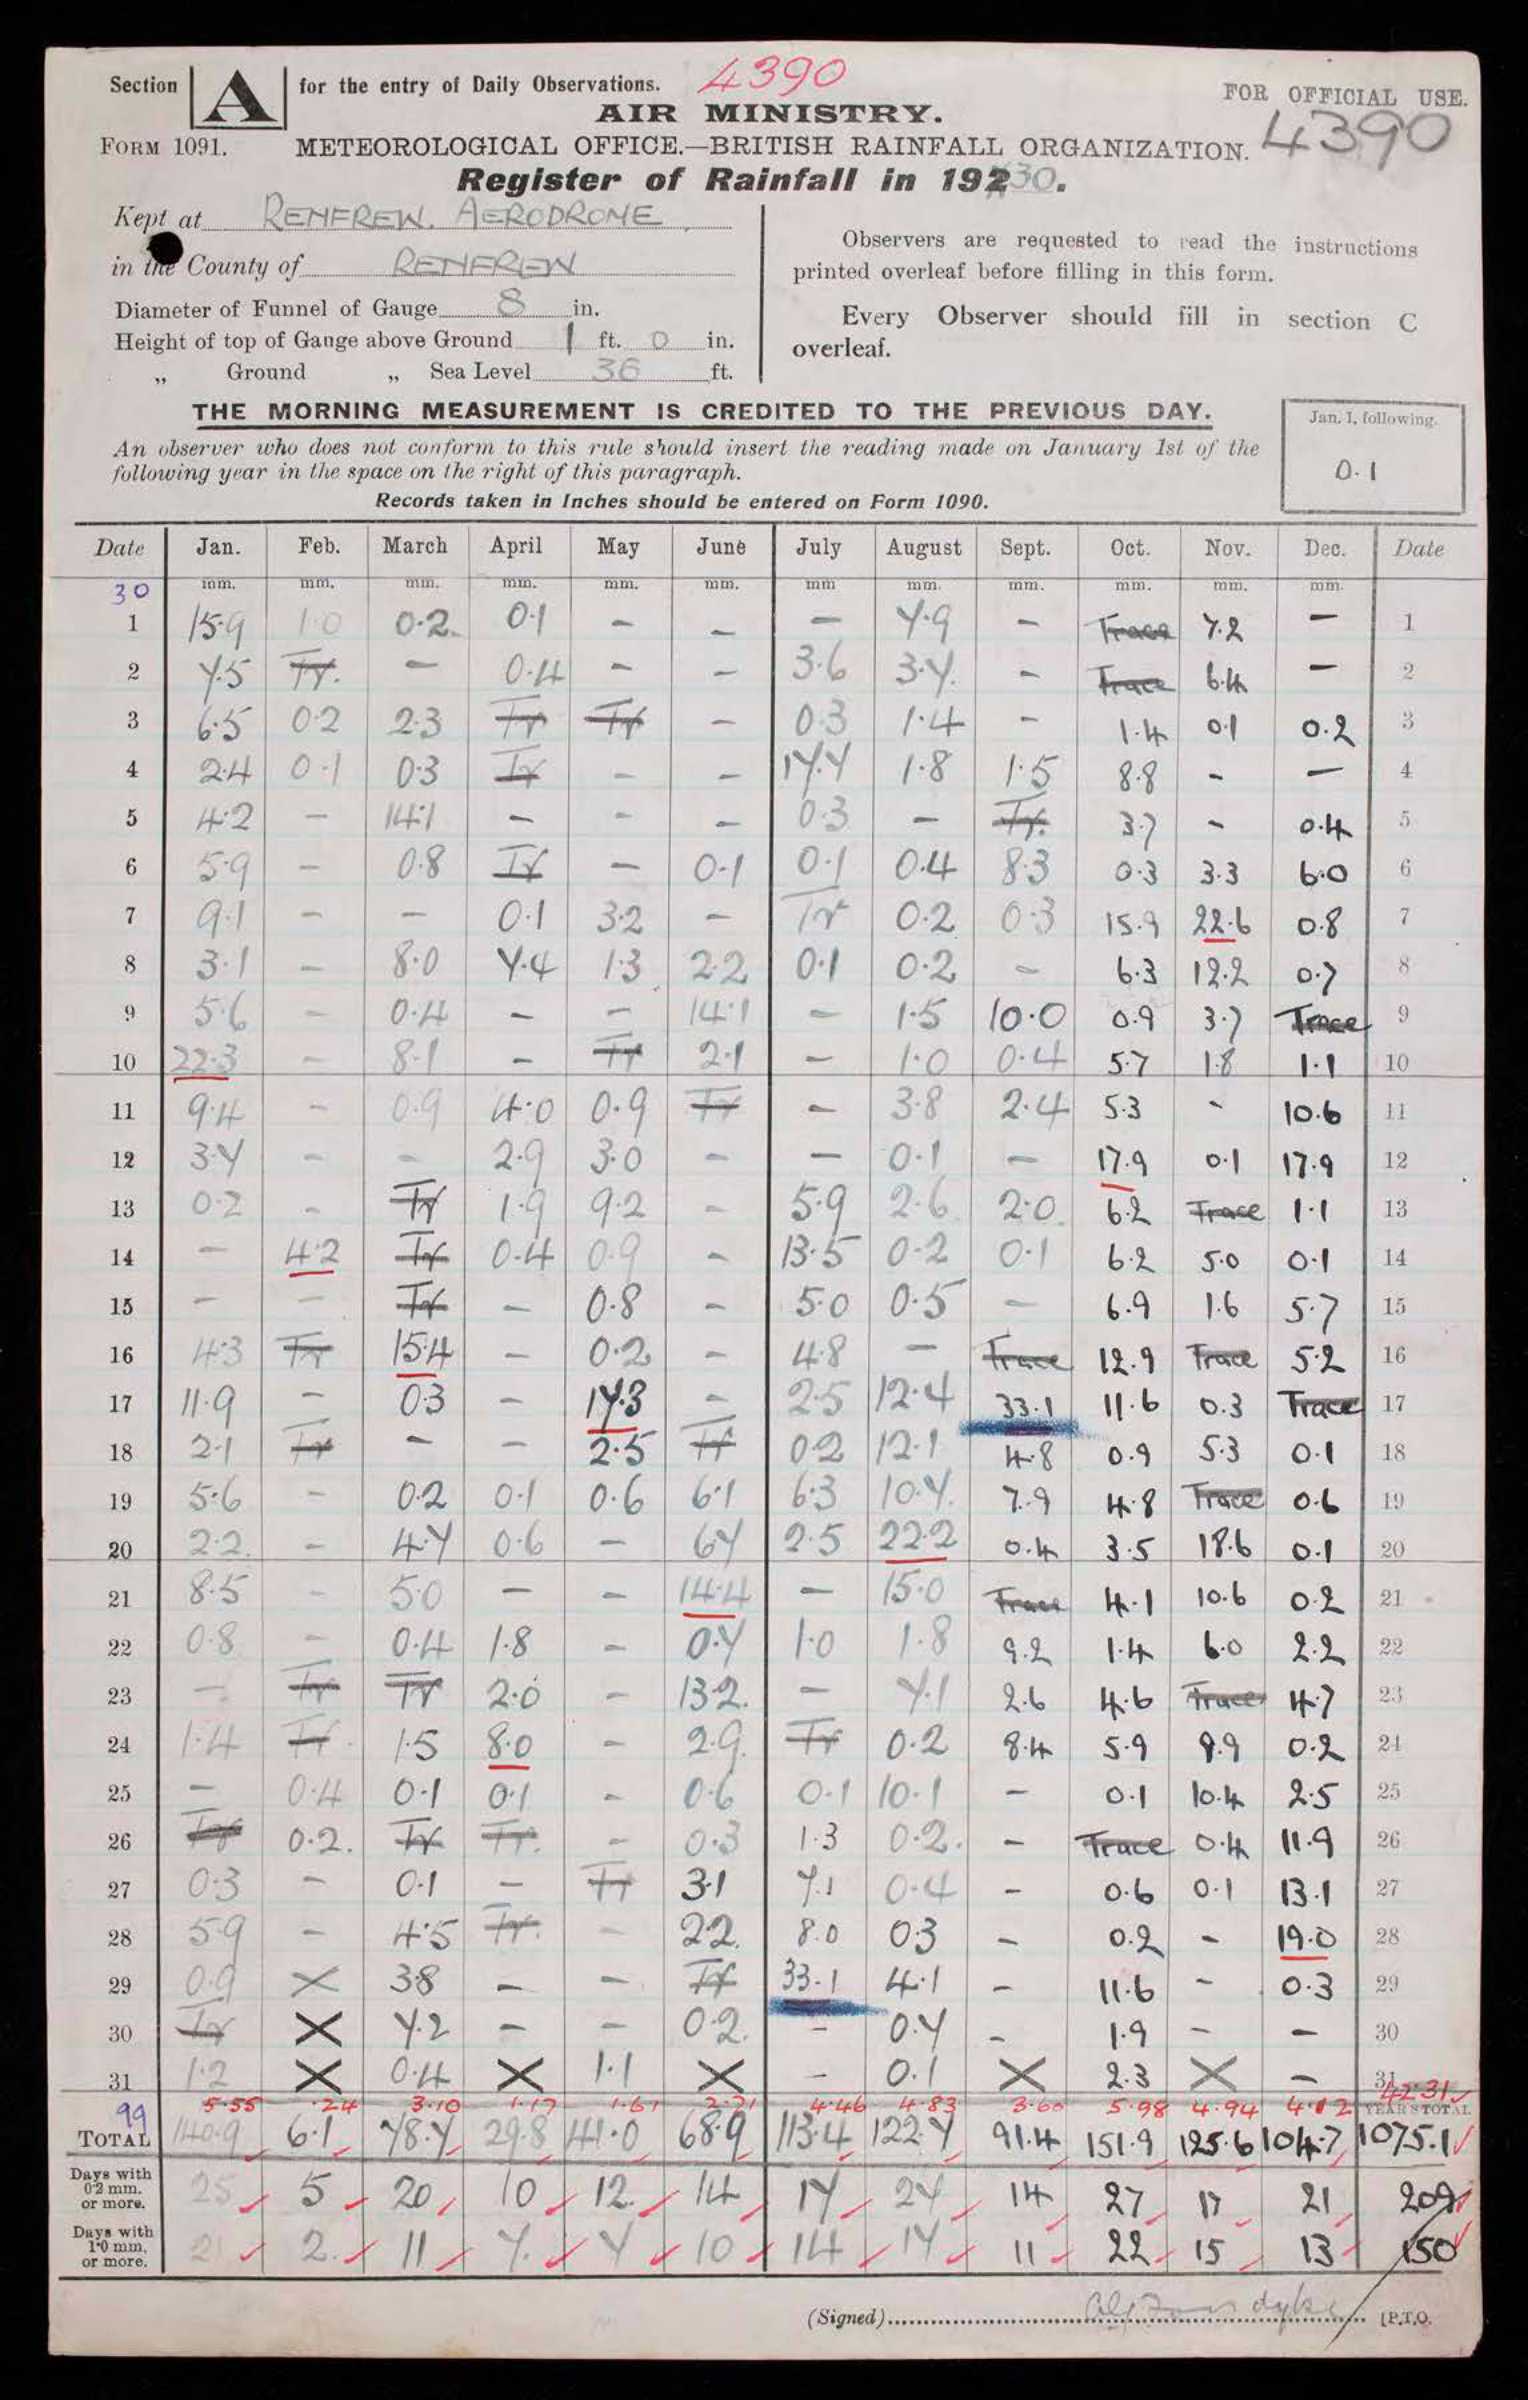 Section A for the entry of Daily Observations. 4390
AIR MINISTRY.
FOR OFFICIAL USE.
FORM 1091. METEOROLOGICAL OFFICE.—BRITISH RAINFALL ORGANIZATION. 4390
Register of Rainfall in 19230.
Kept at RENFREW. AERODROME
in the County of RENFREW
Diameter of Funnel of Gauge 8 in.
Height of top of Gauge above Ground 1 ft. 0 in.
„ Ground „ Sea Level 36 ft.
Observers are requested to read the instructions
printed overleaf before filling in this form.
Every Observer should fill in section C
overleaf.
THE MORNING MEASUREMENT IS CREDITED TO THE PREVIOUS DAY.
An observer who does not conform to this rule should insert the reading made on January 1st of the
following year in the space on the right of this paragraph.
Records taken in Inches should be entered on Form 1090.
Jan. 1, following.
0.1
Date Jan. Feb. March April May June July August Sept. Oct. Nov. Dec. Date
30 mm. mm. mm. mm. mm. mm. mm mm. mm. mm. mm. mm.
1 15.9 1.0 0.2 0.1 — — — 7.9 — Trace 7.2 — 1
2 7.5 Tr. — 0.4 — — 3.6 3.7 — Trace 6.4 — 2
3 6.5 0.2 2.3 Tr Tr — 0.3 1.4 — 1.4 0.1 0.2 3
4 2.4 0.1 0.3 Tr — — 17.7 1.8 1.5 8.8 - — 4
5 4.2 — 14.1 — — — 0.3 — Tr. 3.7 - 0.4 5
6 5.9 — 0.8 Tr — 0.1 0.1 0.4 8.3 0.3 3.3 6.0 6
7 9.1 — — 0.1 3.2 — Tr 0.2 0.3 15.9 22.6 0.8 7
8 3.1 — 8.0 7.4 1.3 2.2 0.1 0.2 — 6.3 12.2 0.7 8
9 5.6 — 0.4 — — 14.1 — 1.5 10.0 0.9 3.7 Trace 9
10 22.3 — 8.1 — Tr 2.1 — 1.0 0.4 5.7 1.8 1.1 10
11 9.4 — 0.9 4.0 0.9 Tr — 3.8 2.4 5.3 - 10.6 11
12 3.7 — — 2.9 3.0 — — 0.1 — 17.9 0.1 17.9 12
13 0.2 — Tr 1.9 9.2 — 5.9 2.6 2.0 6.2 Trace 1.1 13
14 — 4.2 Tr 0.4 0.9 — 13.5 0.2 0.1 6.2 5.0 0.1 14
15 — — Tr — 0.8 — 5.0 0.5 — 6.9 1.6 5.7 15
16 4.3 Tr 15.4 — 0.2 — 4.8 — Trace 12.9 Trace 5.2 16
17 11.9 — 0.3 — 17.3 — 2.5 12.4 33.1 11.6 0.3 Trace 17
18 2.1 Tr — — 2.5 Tr 0.2 12.1 4.8 0.9 5.3 0.1 18
19 5.6 — 0.2 0.1 0.6 6.1 6.3 10.7 7.9 4.8 Trace 0.6 19
20 2.2 — 4.7 0.6 — 6.7 2.5 22.2 0.4 3.5 18.6 0.1 20
21 8.5 — 5.0 — — 14.4 — 15.0 Trace 4.1 10.6 0.2 21
22 0.8 — 0.4 1.8 — 0.7 1.0 1.8 9.2 1.4 6.0 2.2 22
23 — Tr Tr 2.0 — 13.2 — 7.1 2.6 4.6 Trace 4.7 23
24 1.4 Tr. 1.5 8.0 — 2.9 Tr 0.2 8.4 5.9 9.9 0.2 24
25 — 0.4 0.1 0.1 — 0.6 0.1 10.1 — 0.1 10.4 2.5 25
26 Tr 0.2 Tr Tr. — 0.3 1.3 0.2 — Trace 0.4 11.9 26
27 0.3 — 0.1 — Tr 3.1 7.1 0.4 — 0.6 0.1 13.1 27
28 5.9 — 4.5 Tr. — 2.2 8.0 0.3 — 0.2 - 19.0 28
29 0.9 X 3.8 — — Tr 33.1 4.1 — 11.6 - 0.3 29
30 Tr X 7.2 — — 0.2 — 0.7 — 1.9 — — 30
31 1.2 X 0.4 X 1.1 X — 0.1 X 2.3 X — 31
99 5.55 .24 3.10 1.17 1.61 2.71 4.46 4.83 3.60 5.98 4.94 4.12 42.31 YEAR'S TOTAL
TOTAL 140.9 6.1 78.7 29.8 41.0 68.9 113.4 122.7 91.4 151.9 125.6 104.7 1075.1
Days with 0·2 mm. or more. 25 5 20 10 12 14 17 27 14 27 17 21 209
Days with 1·0 mm. or more. 21 2 11 7 7 10 14 17 11 22 15 13 150
(Signed) [P.T.O.